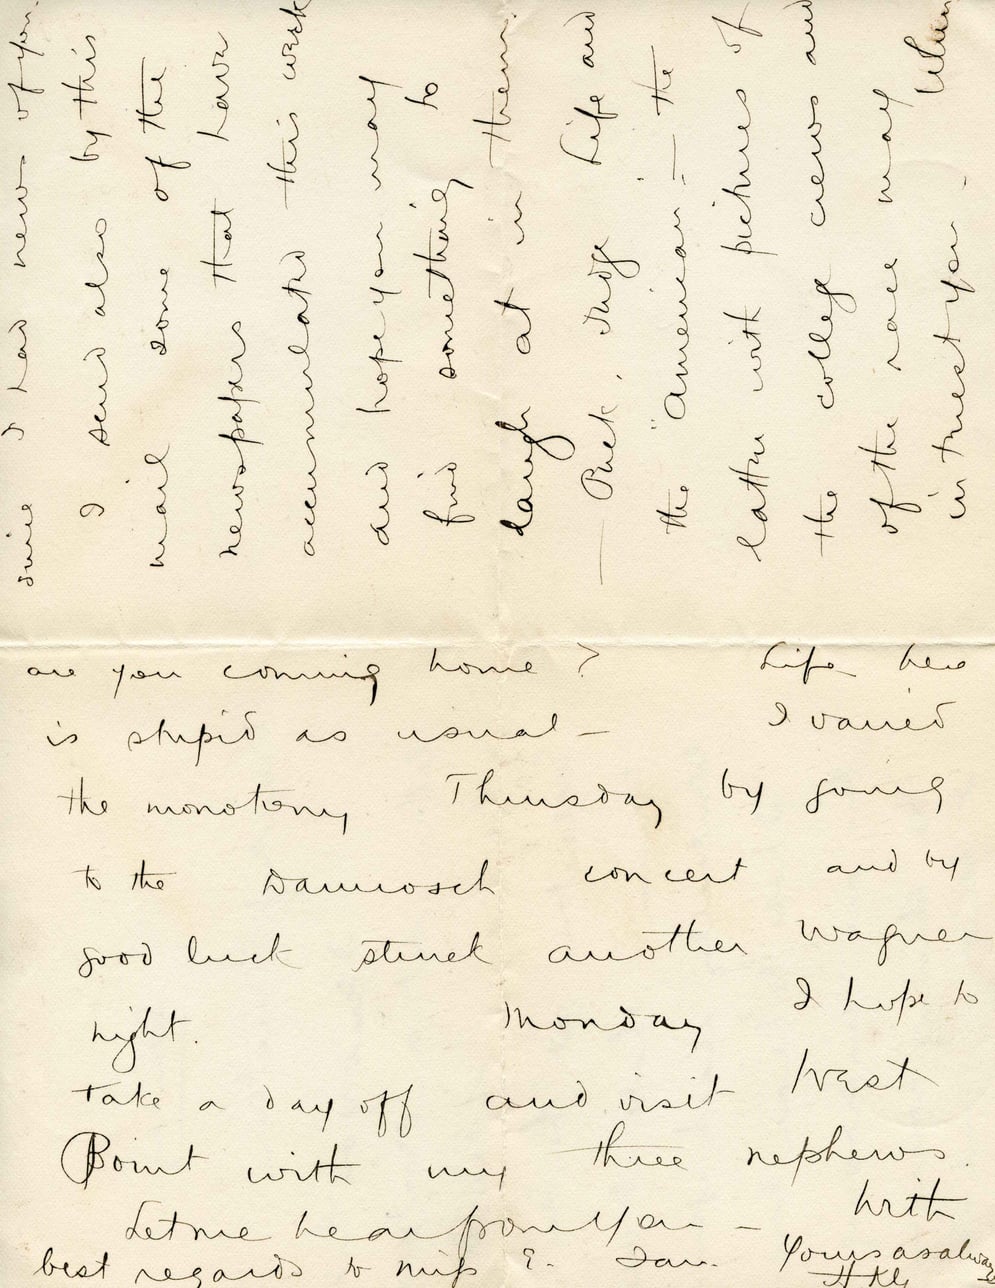 since I had news of you.
I send also by this
mail some of the
newspapers that have
accumulated this week
and hope you may
find something to
laugh at in them.
— Puck, Judge Life and
the "American" — the
latter with pictures of
the college crews and
of the race may
interest you. When
are you coming home? Life here
is stupid as usual — I varied
the monotony Thursday by going
to the Damrosch concert and by
good luck struck another Wagner
night. Monday I hope to
take a day off and visit West
Point with my three nephews.
Let me hear from you — With
best regards to Miss E. I am.
Yours as always